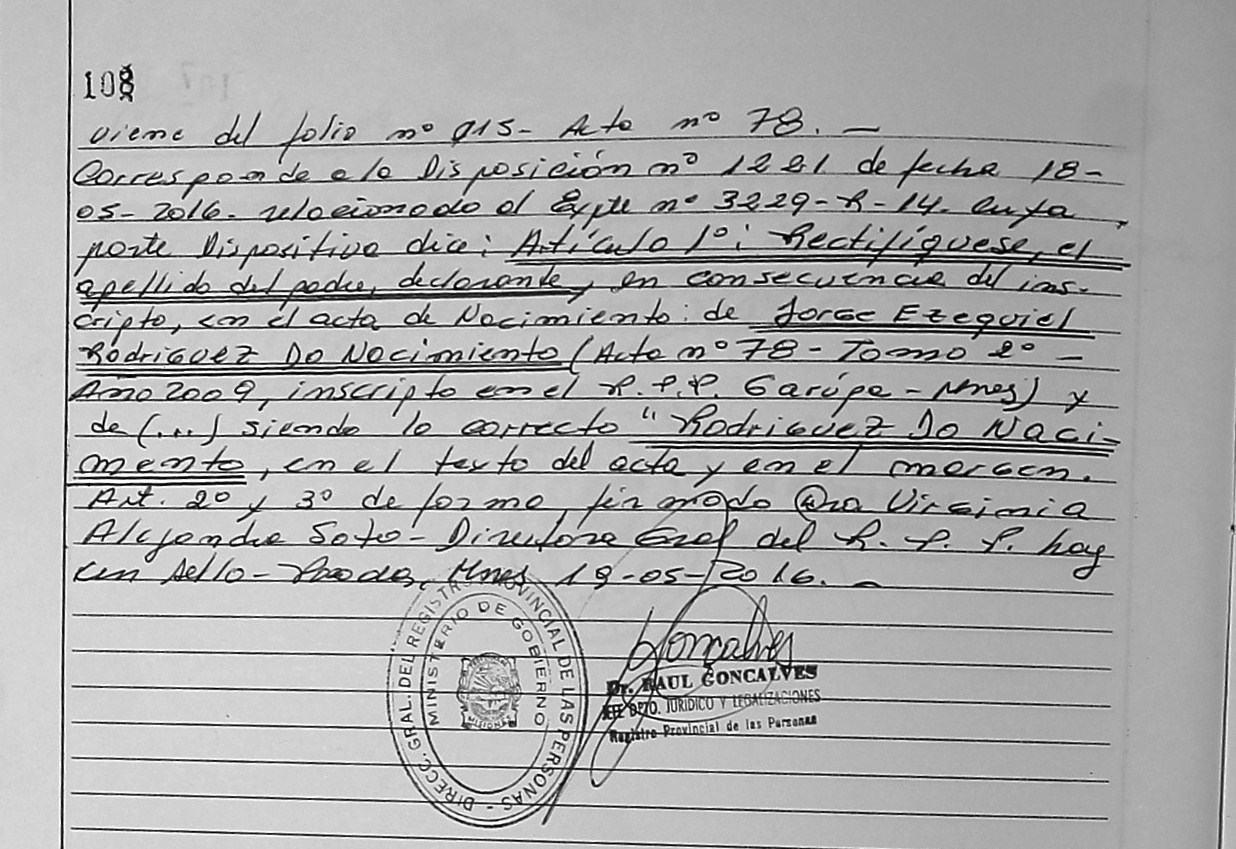 108
viene del folio nº 015- Acta nº 78. —
Corresponde a la Disposición nº 1221 de fecha 18-
05- 2016- relacionado al Expte nº 3229-R-14. cuya
parte Dispositiva dice: Artículo 1º: Rectifíquese, el
apellido del padre, declarante, en consecuencia del ins-
cripto, en el acta de Nacimiento: de Jorge Ezequiel
Rodriguez Do Nacimiento (Acta nº 78 - Tomo 2º -
Año 2009, inscripto en el R.P.P. Garúpa - Mnes) y
de (...) siendo lo correcto "Rodriguez Do Naci-
mento, en el texto del acta y en el margen.
Art. 2º y 3º de forma, firmado Dra Virginia
Alejandra Soto - Directora Gral del R. P. P. hay
un sello - Mnes 19-05-2016. —
DIRECC. GRAL. DEL REGISTRO PROVINCIAL DE LAS PERSONAS -
MINISTERIO DE GOBIERNO
MISIONES
Goncalves
Dr. RAUL GONCALVES
JEFE DPTO. JURIDICO Y LEGALIZACIONES
Registro Provincial de las Personas